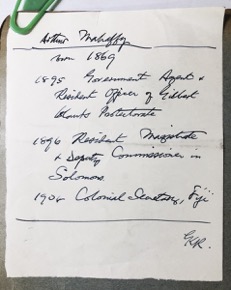 Arthur Mahaffy
born 1869
1895 Government Agent &
Resident Officer of Gilbert
Islands Protectorate
1896 Resident Magistrate
& Deputy Commissioner in
Solomons
Colonial Secretary, Fiji